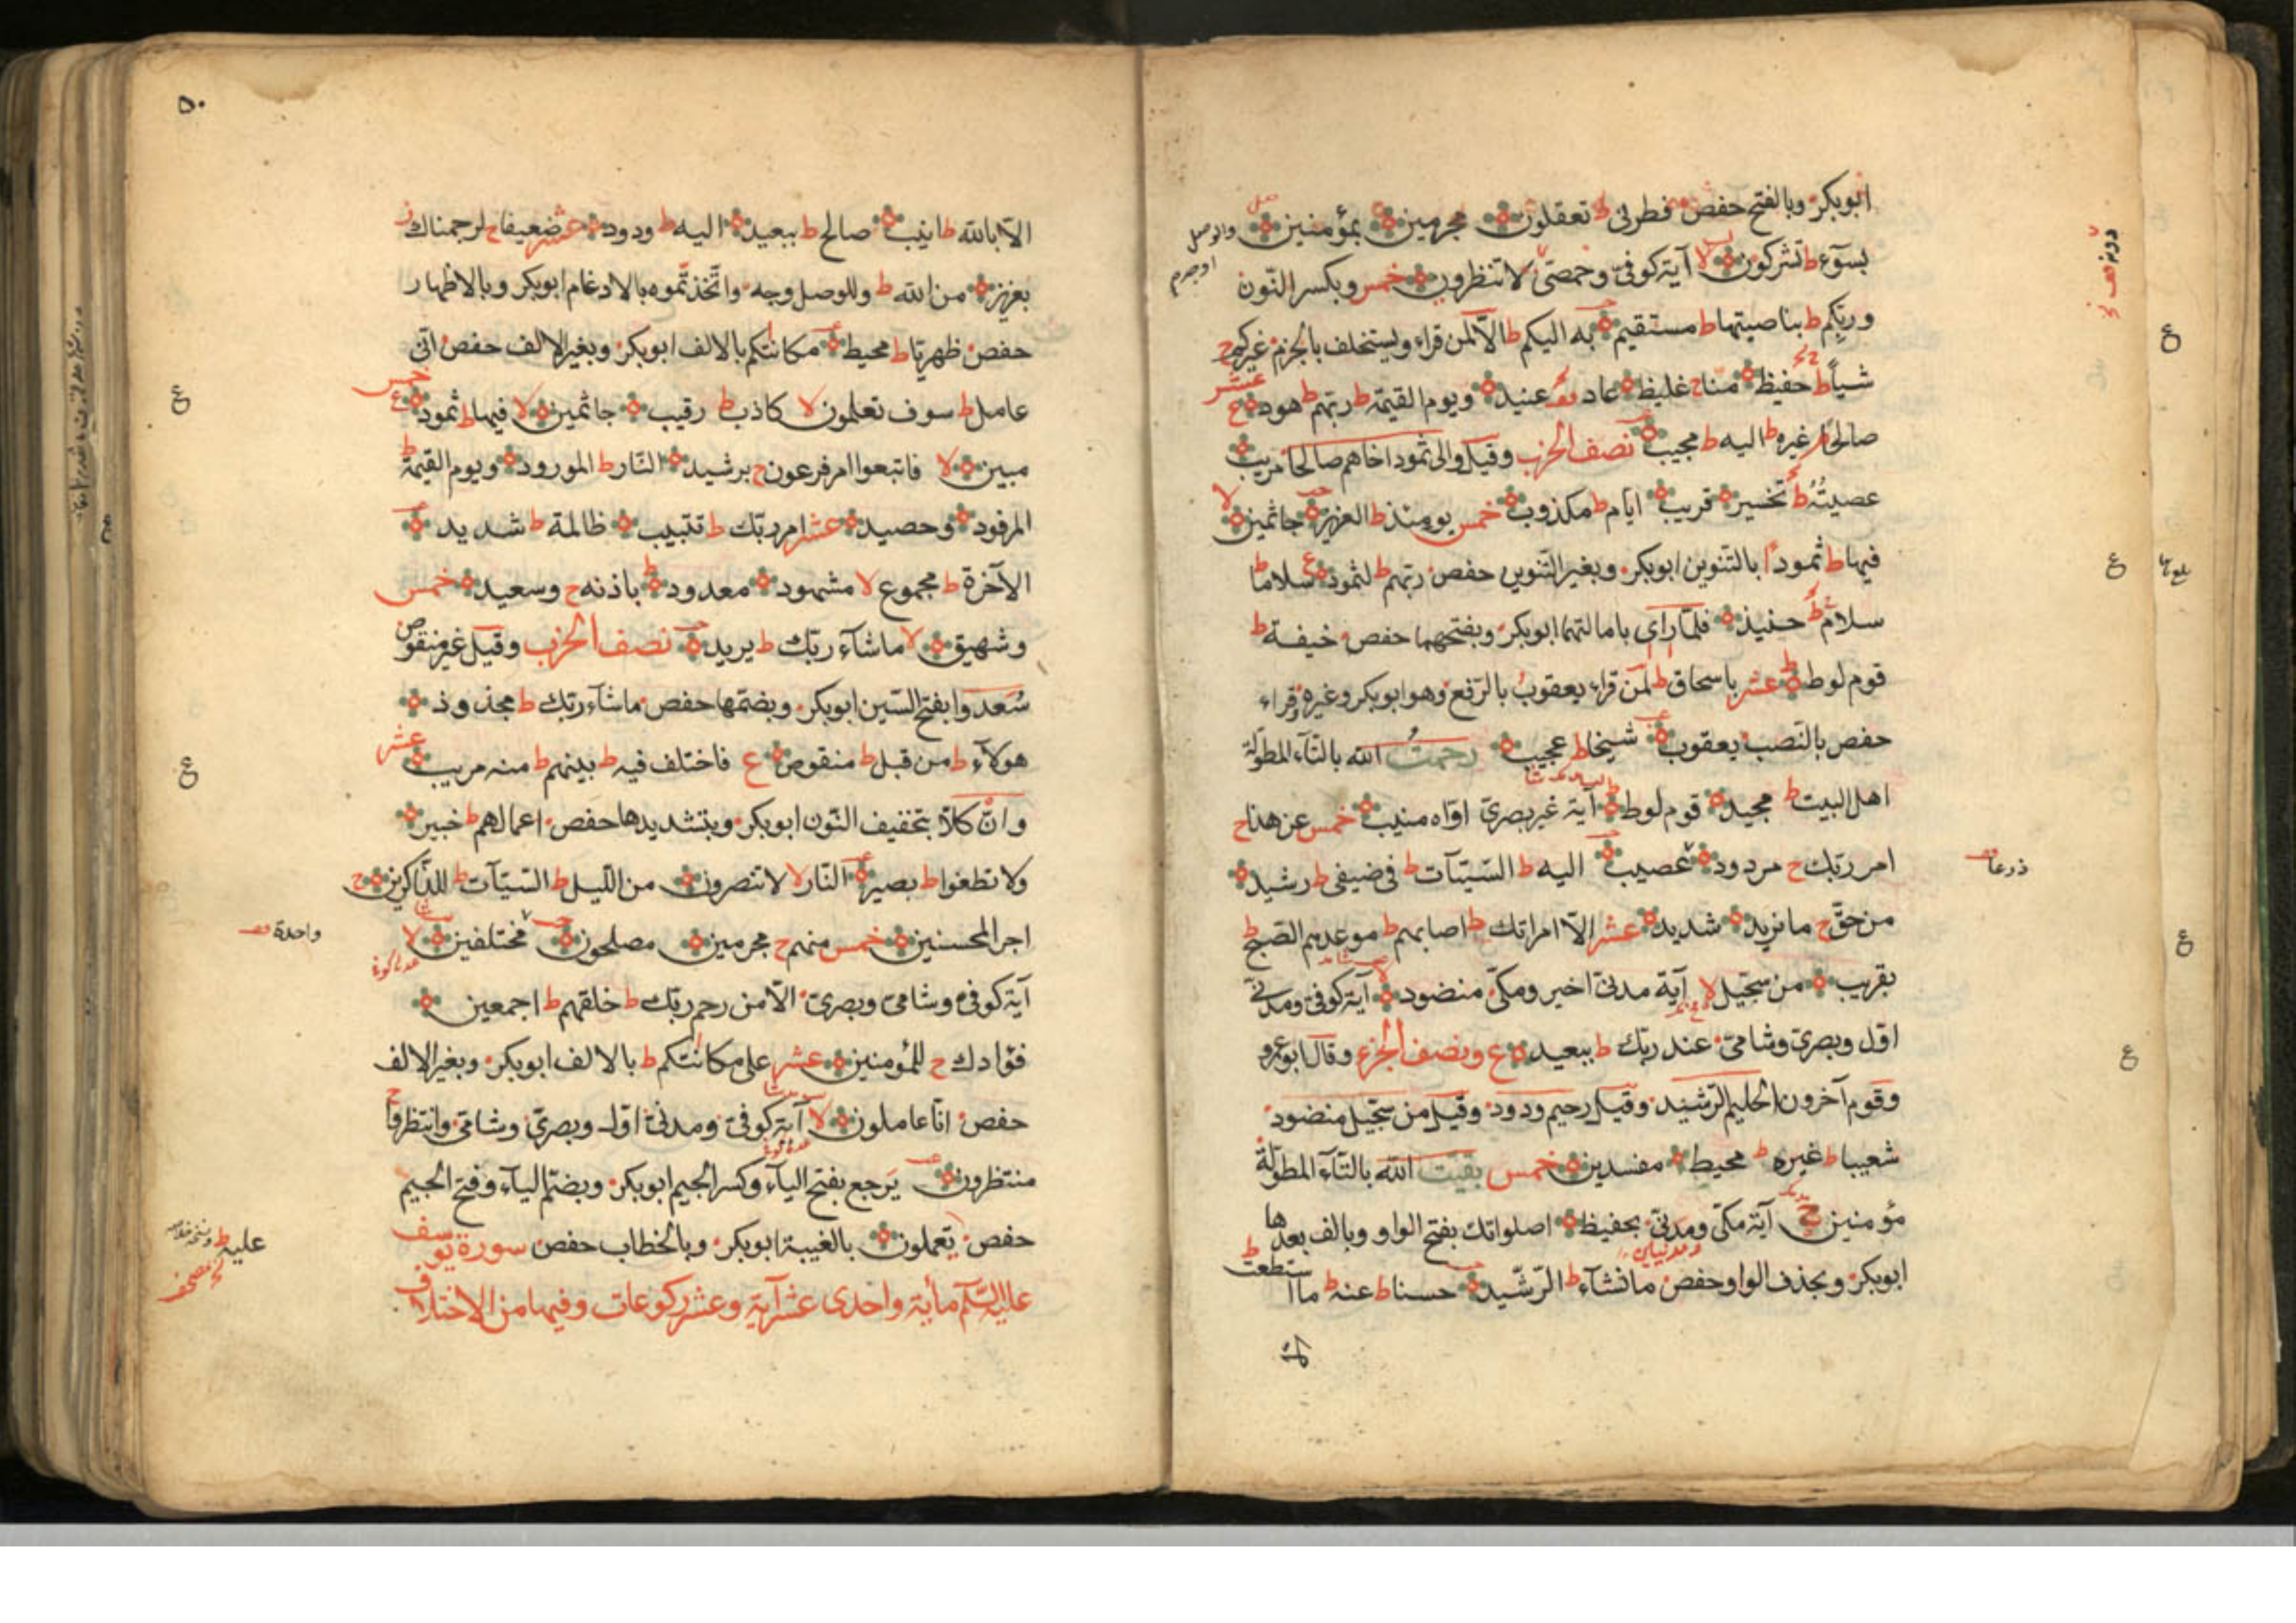 ابوبكر وبالفتح حفص فطرنى ط تعقلون مجرمين بمؤمنين
بسوء ط تشركون لا آية كوفى وحمصى لا تنظرون خمس وبكسر النون
وربكم ط بناصيتها ط مستقيم به اليكم ط الا لمن قراء ويستخلف بالجزم غيركم ج
شيأ ط حفيظ منا ج غليظ عاد عنيد ويوم القيمة ط ربهم ط هود ع عشر
صالحا م غيره ط اليه ط مجيب نصف الحزب وقيل والى ثمود اخاهم صالحا مريب
عصيته ط تخسير قريب ايام ط مكذوب خمس يومئذ ط العزيز جاثمين لا
فيها ط ثمودا بالتنوين ابوبكر وبغير التنوين حفص ربهم ط لثمود ع سلاما ط
سلام ط حنيذ فلما راى بامالتهما ابوبكر وبفتحهما حفص خيفة ط
قوم لوط ط عشر باسحاق ط لمن قراء يعقوب بالرفع وهو ابوبكر وغيره وقراء
حفص بالنصب يعقوب شيخا ط عجيب رحمت الله بالتاء المطولة
اهل البيت ط مجيد قوم لوط ط آية غير بصرى اواه منيب خمس عن هذا ج
امر ربك ج مردود عصيب اليه ط السيئآت ط فى ضيفى ط رشيد
من حق ج ما نريد شديد عشر الا امراتك ط اصابهم ط موعدهم الصبح ط
بقريب من سجيل لا آية مدنى اخير ومكى منضود لا آية كوفى ومدنى
اول وبصرى وشامى عند ربك ط ببعيد ع ونصف الجزء وقال ابو عمرو
وقوم آخرون الحليم الرشيد وقيل رحيم ودود وقيل من سجيل منضود
شعيبا ط غيره ط محيط مفسدين خمس بقيت الله بالتاء المطولة
مؤمنين ج آية مكى ومدنى بحفيظ اصلواتك بفتح الواو وبالف بعدها
ابوبكر وبحذف الواو حفص ما نشآء ط الرشيد حسنا ط عنه ط ما استطعت ط
ذرعا
٥٠
الا بالله ط انيب صالح ط ببعيد اليه ط ودود عشر ضعيفا ج لرجمناك ز
بعزيز من الله ط وللوصل وجه واتخذتموه بالادغام ابوبكر وبالاظهار
حفص ظهريا ط محيط مكاناتكم بالالف ابوبكر وبغير الالف حفص انى
عامل ط سوف تعلمون لا كاذب ط رقيب جاثمين لا فيها ط ثمود ع خمس
مبين لا فاتبعوا امر فرعون ج برشيد النار ط المورود ويوم القيمة ط
المرفود وحصيد عشر امر ربك ط تتبيب ظالمة ط شديد
الآخرة ط مجموع لا مشهود معدود ط باذنه ج وسعيد خمس
وشهيق لا ماشآء ربك ط يريد نصف الحزب وقيل غير منقوص
سعدوا بفتح السين ابوبكر وبضمها حفص ماشآء ربك ط مجذوذ
هولآء ط من قبل ط منقوص ع فاختلف فيه ط بينهم ط منه مريب عشر
وان كلا بتخفيف النون ابوبكر وبتشديدها حفص اعمالهم ط خبير
ولا تطغوا ط بصير النار لا لا تنصرون من الليل ط السيئآت ط للذاكرين ج
اجر المحسنين خمس منهم ج مجرمين مصلحون مختلفين لا
آية كوفى وشامى وبصرى الا من رحم ربك ط خلقهم ط اجمعين
فؤادك ج للمؤمنين عشر على مكاناتكم ط بالالف ابوبكر وبغير الالف
حفص انا عاملون لا آية كوفى ومدنى اول وبصرى وشامى وانتظروا ج
منتظرون يرجع بفتح اليآء وكسر الجيم ابوبكر وبضم اليآء وفتح الجيم
حفص يعملون بالغيبة ابوبكر وبالخطاب حفص سورة يوسف
عليه السلم مأية واحدى عشر آية وعشر ركوعات وفيها من الاختلاف
واحدة
عليه ط